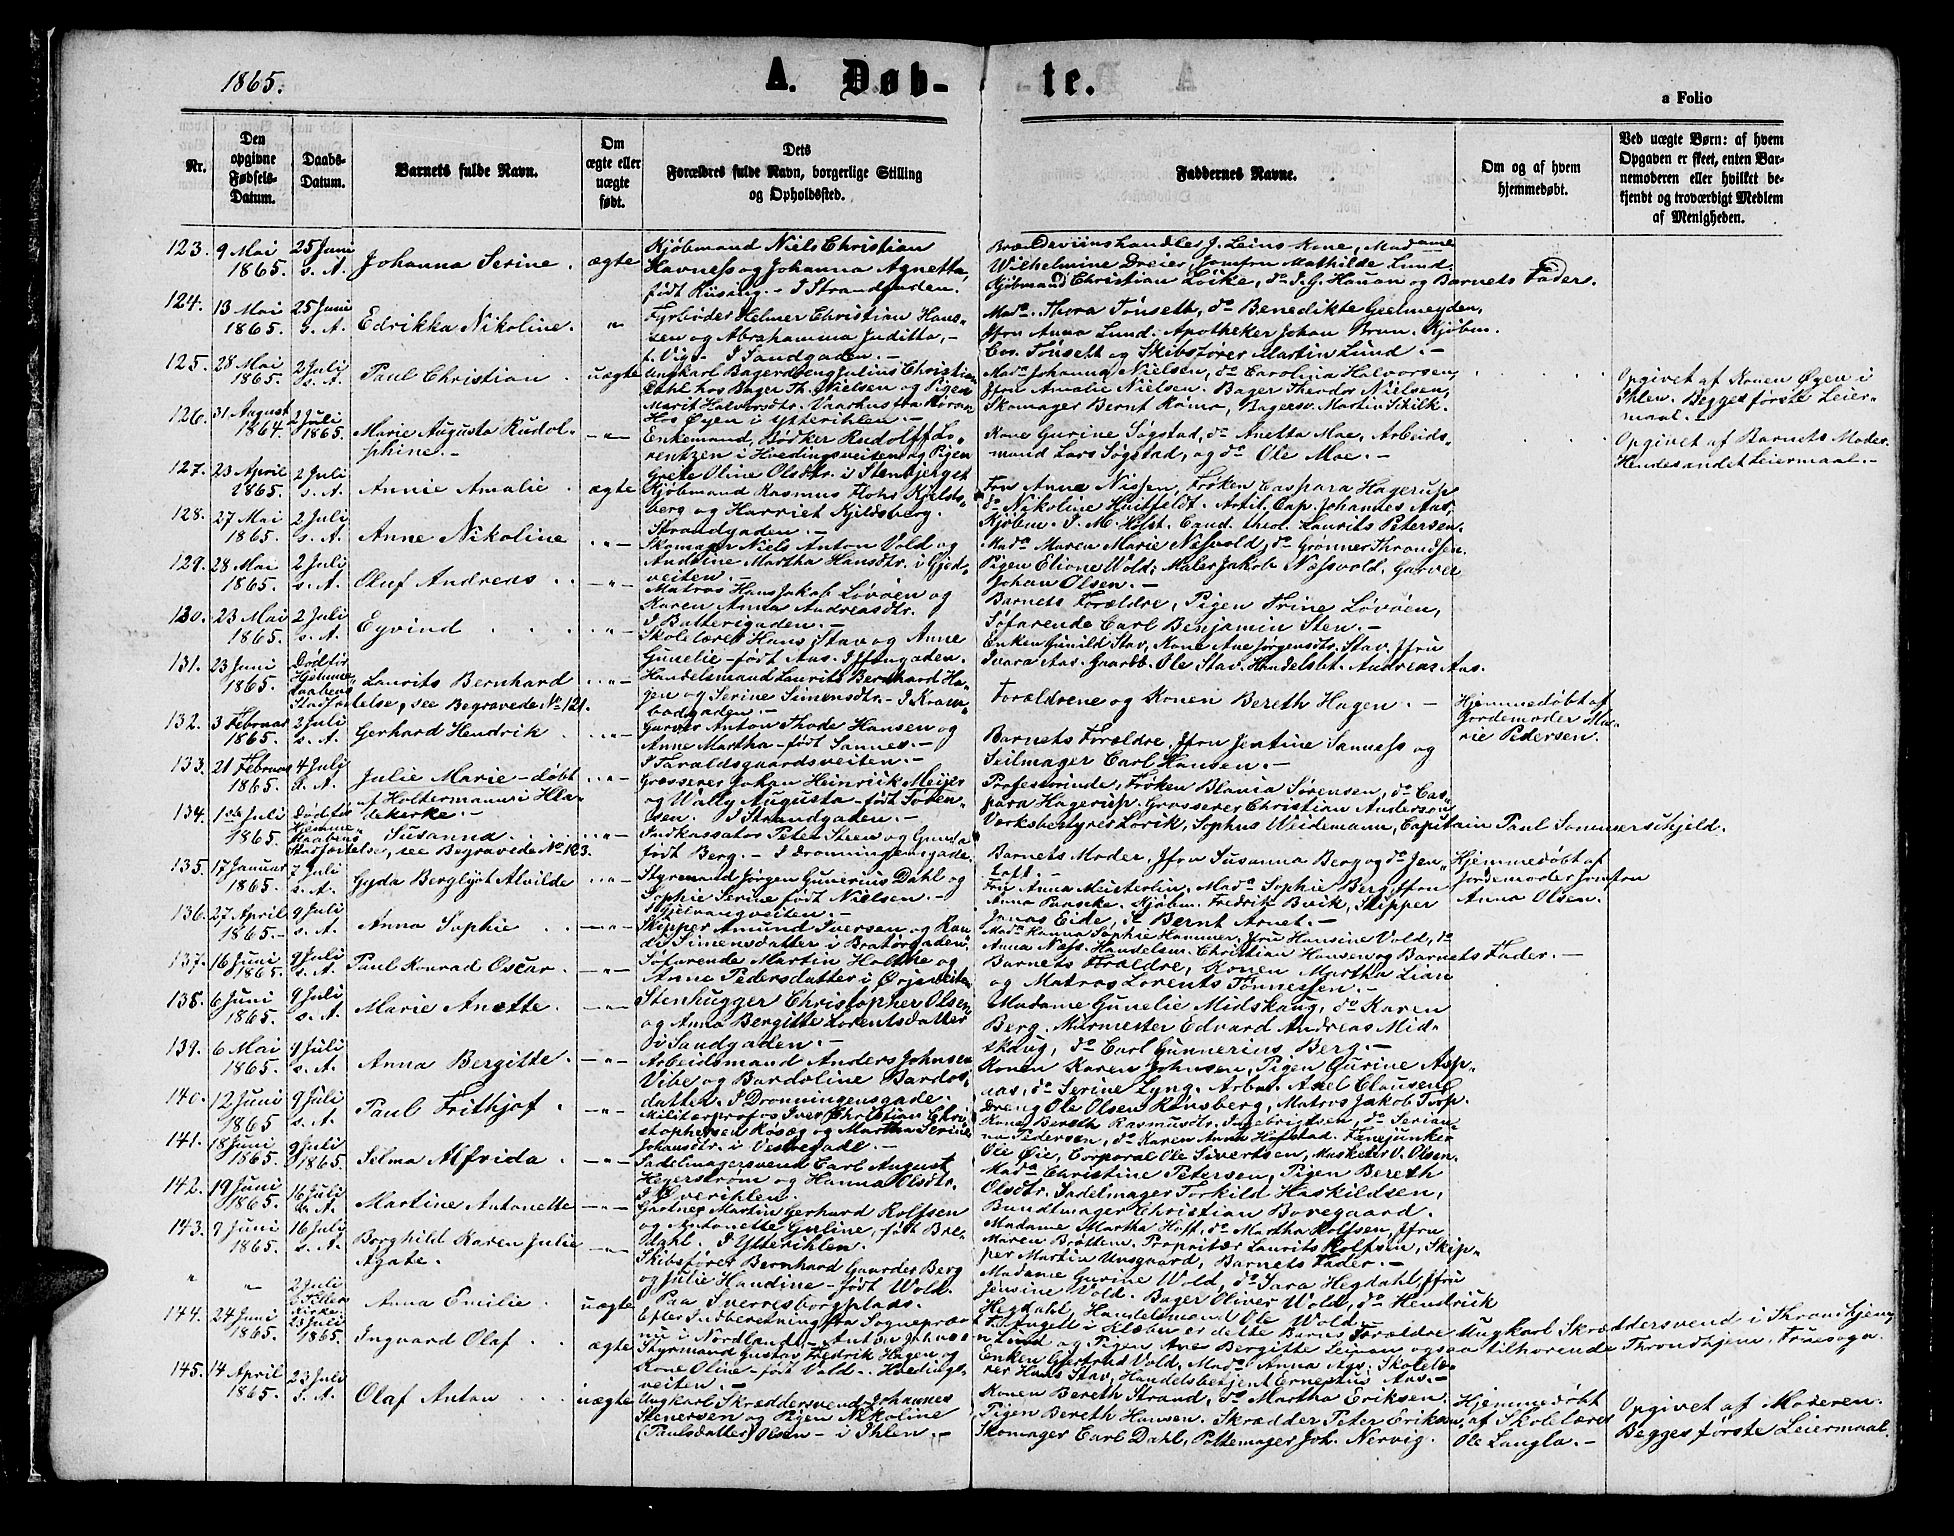 1865.
A. Døb-
te.
a Folio
Nr.
Den opgivne Fødsels-Datum.
Daabs-Datum.
Barnets fulde Navn.
Om ægte eller uægte født.
Dets Forældres fulde Navn, borgerlige Stilling og Opholdssted.
Faddernes Navne.
Om og af hvem hjemmedøbt.
Ved uægte Børn: af hvem Opgaven er skeet, enten Barnemoderen eller hvilket bekjendt og troværdigt Medlem af Menigheden.
123. 9 Mai 1865. 25 Juni s. A. Johanna Serine. ægte
Kjøbmand Niels Christian
Havness og Johanna Agnetta,
født Riising. - I Strandgaden.
Brændeviinshandler J. Leins Kone, Madame
Wilhelmine Dreier, Jomfru Mathilde Lund.
Kjøbmand Christian Løcke, do I. G. Hauan og Barnets Fader.
124. 13 Mai 1865. 25 Juni s. A. Edrikka Nikoline. "
Fyrbøder Helmer Christian Hans-
sen og Abrahamma Juditta, -
f. Vigs - I Sandgaden. -
Mad. Thora Tønseth, do Benedikte Geelmeyden,
Jfru Anna Lund. Apotheker Johan Brun. Kjøbm.
Chr. Tønseth og Skibsfører Martin Lund. -
125. 28 Mai 1865. 2 Juli s. A. Paul Christian. uægte
Ungkarl Bagerdreng Julius Christian
Dahl hos Bager Th. Nielsen og Pigen
Marit Halvorsdtr. Vaarhus fra Røraas
Hos Øyen i Ytterihlen.
Mada Johanna Nielsen, do Carolina Halvorsen,
Jfru Amalie Nielsen. Bager Theodor Nielsen,
Skomager Bernt Rømo, Bagersv. Martin Schilk.
Opgivet af Konen Øyen i
Ihlen. Begges første Leier-
maal. -
126. 31 August 1864. 2 Juli 1865. Marie Augusta Rudol-
phine. - - " -
Enkemand, Bødker Rudolff Lo-
rentzen i Hvedingsveiten og Pigen
Grete Oline Olsdtr. i Stenbjerget
Kone Gurine Søgstad, do Anetta Moe, Arbeids-
mand Lars Søgstad, og do Ole Moe. -
Opgivet af Barnets Moder.
Hendes andet Leiermaal. -
127. 23 April 1865. 2 Juli s. A. Annie Amalie. ægte
Kjøbmand Rasmus Flohr Kjelds-
berg og Harriet Kjeldsberg.
Strandgaden. -
Fru Anna Nissen, Frøken Caspara Hagerup,
do Nikoline Huitfeldt. Artil. Cap. Johannes Aas.
Kjøbm. I. M. Holst. Cand. theol. Laurits Petersen.
128. 27 Mai 1865. 2 Juli s. A. Anne Nikoline - " -
Skomager Niels Anton Vold og
Andrine Martha Hansdtr. i Gjed-
veiten. -
Mada Maren Marie Næsvold, do Grønner Throndsen.
Pigen Elione Wold. Maler Jakob Næssvold. Garver
Johan Olsen. -
129. 28 Mai 1865. 2 Juli s. A. Oluf Andreas. - " -
Matros Hans Jakob Løvøen og
Karen Anna Andreasdtr.
I Batterigaden. -
Barnets Forældre, Pigen Trine Løvøen,
Søfarende Carl Benjamin Sten. -
130. 23 Mai 1865. 2 Juli s. A. Eyvind. - " -
Skolelærer Hans Stav og Anne
Gunelie - født Aus. I Ilfengaden.
Enken Gunild Stav, Kone Ane Jørgensdtr. Stav. Jfru
Ivara Aas. Gaardb. Ole Stav. Handelsbt. Andreas Aas.
131. 23 Juni 1865. Død før Hjemmedaabens Stadfæstelse, see Begravede No 121. Laurits Bernhard - " -
Handelsmand Laurits Bernhard Ha-
gen og Serine Simensdtr. - I Kram-
bodgaden. -
Forældrene og Konen Bereth Hagen. -
Hjemmedøbt af
Jordemoder Ma-
rie Pedersen.
132. 3 Februar 1865. 2 Juli s. A. Gerhard Hendrik. - " -
Garver Anton Thode Hansen og
Anne Martha - født Sannes. -
I Taraldsgaardsveiten. -
Barnets Forældre, Jfru Jentine Sanness og
Seilmager Carl Hansen. -
133. 21 Februar 1865. 4 July s. A. Julie Marie - døbt
af Holtermann i Hla-
dekerke. - - " -
Grosserer Johan Heinrich Meyer
og Wally Augusta - født Søren-
sen. I Strandgaden. -
Professorinde, Frøken Blavia Sørensen, do Cas-
para Hagerup. Grosserer Christian Anderson,
Værksbestyrer Lorik, Sophus Weidemann, Capitain Paul Sommerschjeld.
134. 1ste Juli 1865. Død før Hjemmedaabens Stadfæstelse, see Begravede No 123. Susanna. - " -
Indkassator Peter Steen og Gunda
født Berg. - I Dronningensgade.
Barnets Moder, Jfru Susanna Berg og do Jen-
Toft. -
Hjemmedøbt af
Jordemoder Jomfru
Anna Olsen.
135. 17 Januar 1865. 7 Juli s. A. Gyda Berglyot Alvilde - " -
Styrmand Jørgen Gunerius Dahl og
Sophie Serine født Nielsen. -
Kjelvangveiten. -
Fru Anna Meisterlin, Mada Sophie Berg, Jfru
Anna Parske. Kjøbm. Fredrik Bvik, Skipper
Jonas Eide, St. Bernt Arnet. -
136. 27 April 1865. - 9 Juli s. A. Anna Sophie. - " -
Skipper Amund Iversen og Ran-
di Simensdatter i Bratørgaden.
Mada Hanna Sophie Hammer, Jfru Hansine Vold, do
Anna Næss. Handelsm. Christian Hansen og Barnets Fader. -
137. 16 Juni 1865. 9 Juli s. A. Paul Konrad Oscar. - " -
Søfarende Martin Holthe og
Anne Pedersdatter i Ørjaveiten
Barnets Forældre, Konen Martha Lian
og Matros Lorents Tønnessen. -
138. 6 Juni 1865. 9 Juli s. A. Marie Anette. - " -
Stenhugger Christopher Olsen
og Anna Bergitte Lorentsdatter
i Sandgaden. -
Madame Gunelie Midskaug, do Karen
Berg. Murmester Edvard Andreas Mid-
skaug, do Carl Gunnerius Berg. -
139. 6 Mai 1865. 9 Juli s. A. Anna Bergitte. - " -
Arbeidsmand Anders Johnsen
Vibe og Bardoline Bardos-
datter. I Dronningensgade.
Konen Karen Johnsen, Pigen Gurine Asp-
aas, do Serine Lyng. Arbm. Axel Clausen,
Dreng Ole Olsen Rønsberg, Matros Jakob Torp.
140. 12 Juni 1865 9 Juli s. A. Paul Frithjof. - " -
Militærprofos Iver Christian Chri-
stophersen Røsæg og Martha Serine
Johansdtr. i Vestregade. -
Kone Bereth Rasmusdtr. Ingebrigtsen, do Serian-
na Pedersen, do Karen Anna Hofstad. Fanejunker
Ole Øie, Corporal Ole Sivertsen, Musketer V. Olsen.
141. 18 Juni 1865. 9 Juli 1865. Selma Alfrida. - " -
Sadelmagersvend Carl August
Hegerstrøm og Hanna Olsdtr.
I Øverihlen.
Mada Christine Petersen, Pigen Bereth
Olsdtr. Sadelmager Torkild Haskildsen,
Bundtmager Christian Bovegaard.
142. 19 Juni 1865. 16 Juli s. A. Martine Antonette - " -
Gartner Martin Gerhard Rolfsen
og Antonette Guline, født Bre-
dahl. I Ytterihlen.
Madame Martha Hoff, do Martha Rolfsen, Jfru
Maren Bratten. Proprietær Laurits Rolfsen, Skip-
per Martin Unsgaard, Barnets Fader. -
143. 9 Juni 1865. 16 Juli s. A. Borghild Karen Julie
Agate. - " -
Skibsfører Bernhard Gaarder Berg
og Julie Haudine - født Wold.
Paa Sverresborgplads.
Madame Gurine Wold, do Sara Hegdahl, Jfru
Jensine Wold. Bager Oliver Wold, do Hendrick
Hegdahl, Handelsmand Ole Wold. -
" " 2 Juli Anna Emilie. uægte
Efter Indberetning fra Sognepræ-
n i Nordland, - Anton Johnsen
F. Angell i Klæbu er dette Barns Forældre Ungkarl Skræddersvend i Throndhjem
Lund og Pigen Ane Bergitte Leiran ogsaa tilhørende Throndhjem Fruesogn.
144. 24 Juni 1865. 23 Juli 1865. Ingvard Olaf. ægte
Styrmand Gustav Fredrik Hagen og
Kone Oline - født Vold. - Hvedings-
veiten. -
Enken Gjertrud Vold, Mada Anna Aas. Skolelæ-
rer Hans Stav, Handelsbetjent Ernestus Aas. -
145. 14 April 1865. 23 Juli s. A. Olaf Anton. uægte
Ungkarl Skræddersvend Johannes
Stenersen og Pigen Nikoline
(Paulsdatter) Olsen - i Ihlen. -
Konen Bereth Strand, do Martha Eriksen.
Pigen Bereth Hansen. Skrædder Peter Eriksen,
Skomager Carl Dahl, Pottemager Joh. Nervig.
Hjemmedøbt
af Skolelærer
Ole Langla. -
Opgivet af Moderen.
Begges første Leiermaal.